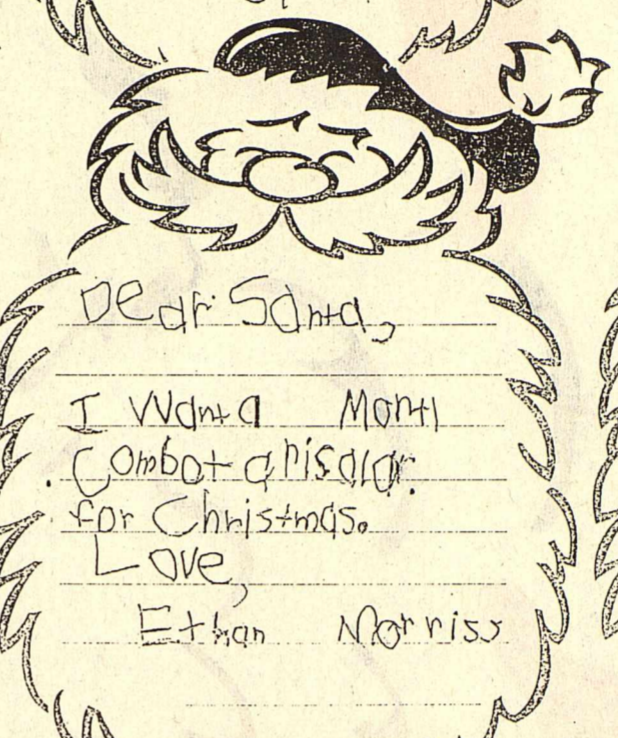 Dear Santa,
I Want a Mortl
Combat arisalar.
for Christmas.
Love,
Ethan Morriss